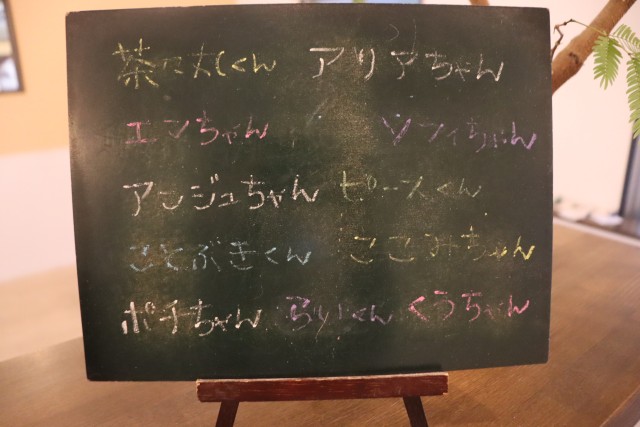 茶々丸くん アリアちゃん
エンちゃん ソフィちゃん
アンジュちゃん ピースくん
ことぶきくん ここみちゃん
ポチちゃん くん くうちゃん